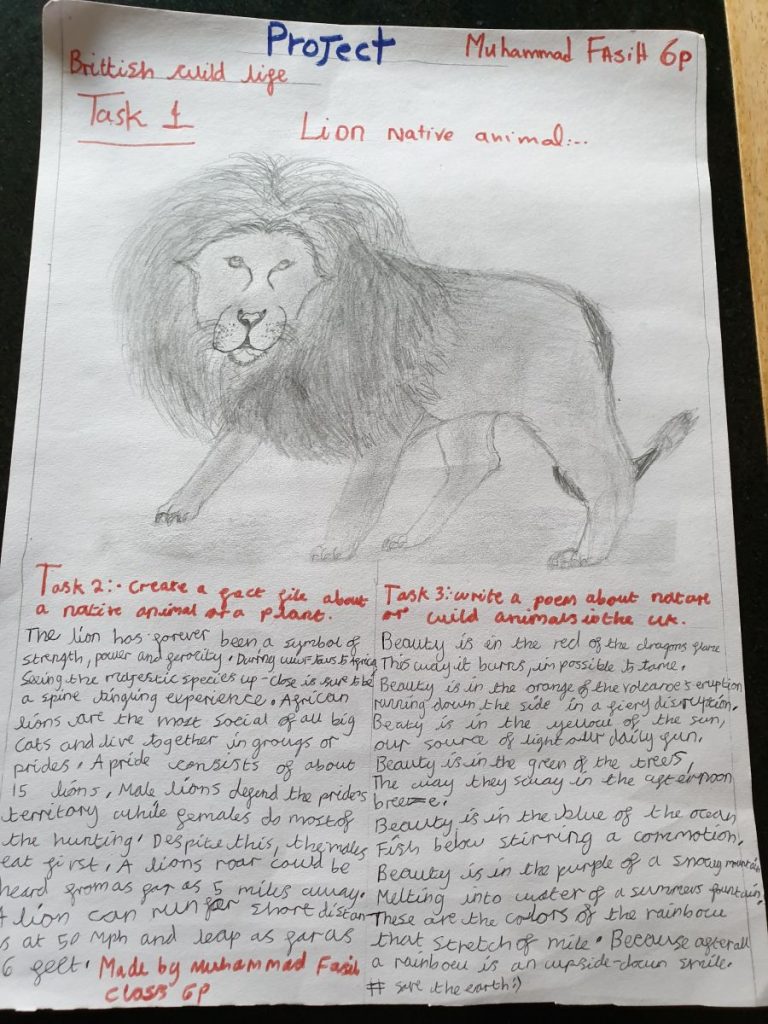 Project
Muhammad FAsiH 6p
Brittish wild life
Task 1
Lion Native animal:..
Task 2:- Create a fact file about
a native animal or a plant.
The lion has forever been a symbol of
strength, power and ferocity. During
Seeing the majestic species up-close is sure to be
a spine tingling experience. African
lions are the most social of all big
cats and live together in groups or
prides. A pride consists of about
15 lions. Male lions defend the prides
territory while females do most of
the hunting. Despite this, the males
eat first. A lions roar could be
heard from as far as 5 miles away.
A lion can run for short distan-
s at 50 mph and leap as far as
6 feet. Made by Muhammad Fasih
class 6P
Task 3: write a poem about nature
or wild animals in the UK.
Beauty is in the red of the dragons flare
This way it burns, in possible to tame.
Beauty is in the orange of the volcanoe's eruption
running down the side in a fiery disruption.
Beaty is in the yellow of the sun,
our source of light our daily fun.
Beauty is in the green of the trees,
The way they sway in the afternoon
breeze.
Beauty is in the blue of the ocean
Fish below stirring a commotion.
Beauty is in the purple of a snowy mountain
Melting into water of a summers fountain.
These are the colors of the rainbow
that stretch of mile. Because after all
a rainbow is an upside-down smile.
# save the earth:)